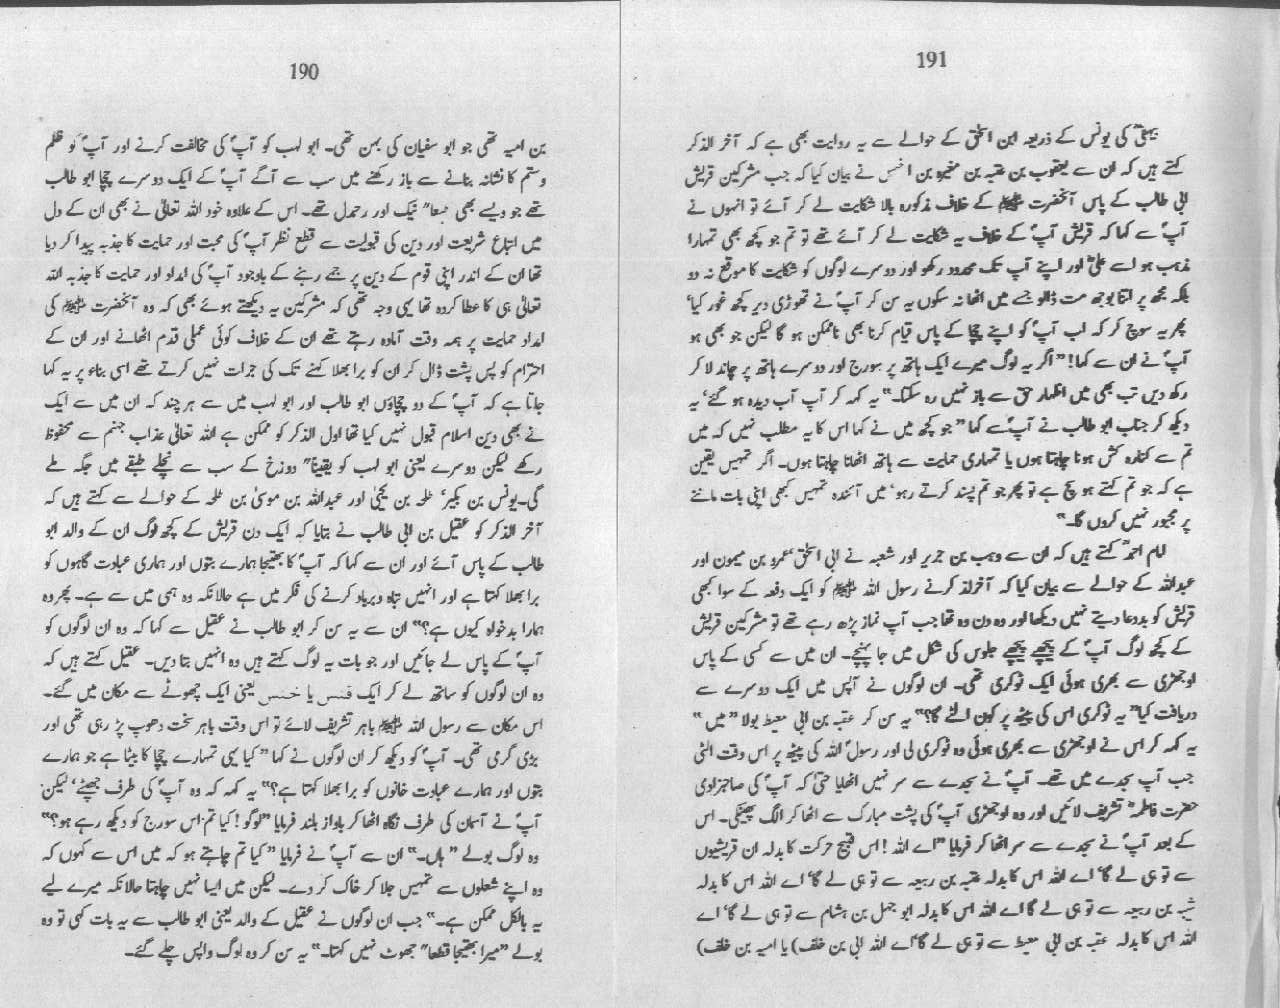 190
بن امیہ تھی جو ابو سفیان کی بہن تھی۔ ابو لہب کو آپؐ کی مخالفت کرنے اور آپؐ کو ظلم
وستم کا نشانہ بنانے سے باز رکھنے میں سب سے آگے آپؐ کے ایک دوسرے چچا ابو طالب
تھے جو ویسے بھی طبعا" نیک اور رحمدل تھے۔ اس کے علاوہ خود اللہ تعالیٰ نے بھی ان کے دل
میں اتباع شریعت اور دین کی قبولیت سے قطع نظر آپؐ کی محبت اور حمایت کا جذبہ پیدا کر دیا
تھا ان کے اندر اپنی قوم کے دین پر جمے رہنے کے باوجود آپؐ کی امداد اور حمایت کا جذبہ اللہ
تعالیٰ ہی کا عطا کردہ تھا یہی وجہ تھی کہ مشرکین یہ دیکھتے ہوئے بھی کہ وہ آنحضرت ﷺ کی
امداد حمایت پر ہمہ وقت آمادہ رہتے تھے ان کے خلاف کوئی عملی قدم اٹھانے اور ان کے
احترام کو پس پشت ڈال کر ان کو برا بھلا کہنے تک کی جرات نہیں کرتے تھے اسی بناء پر یہ کہا
جاتا ہے کہ آپؐ کے دو چچاؤں ابو طالب اور ابو لہب میں سے ہر چند کہ ان میں سے ایک
نے بھی دین اسلام قبول نہیں کیا تھا اول الذکر کو ممکن ہے اللہ تعالیٰ عذاب جہنم سے محفوظ
رکھے لیکن دوسرے یعنی ابو لہب کو یقیناً" دوزخ کے سب سے نچلے طبقے میں جگہ ملے
گی۔ یونس بن بکیر' طلحہ بن یحییٰ اور عبداللہ بن موسیٰ بن طلحہ کے حوالے سے کہتے ہیں کہ
آخر الذکر کو عقیل بن ابی طالب نے بتایا کہ ایک دن قریش کے کچھ لوگ ان کے والد ابو
طالب کے پاس آئے اور ان سے کہا کہ آپؐ کا بھتیجا ہمارے بتوں اور ہماری عبادت گاہوں کو
برا بھلا کہتا ہے اور انہیں تباہ وبرباد کرنے کی فکر میں ہے حالانکہ وہ ہمی میں سے ہے۔ پھر وہ
ہمارا بدخواہ کیوں ہے؟" ان سے یہ سن کر ابو طالب نے عقیل سے کہا کہ وہ ان لوگوں کو
آپؐ کے پاس لے جائیں اور جو بات یہ لوگ کہتے ہیں وہ انہیں بتا دیں۔ عقیل کہتے ہیں کہ
وہ ان لوگوں کو ساتھ لے کر ایک یا یعنی ایک چھوٹے سے مکان میں گئے۔
اس مکان سے رسول اللہ ﷺ باہر تشریف لائے تو اس وقت باہر سخت دھوپ پڑ رہی تھی اور
بڑی گرمی تھی۔ آپؐ کو دیکھ کر ان لوگوں نے کہا "کیا یہی تمہارے چچا کا بیٹا ہے جو ہمارے
بتوں اور ہمارے عبادت خانوں کو برا بھلا کہتا ہے؟" یہ کہہ کہ وہ آپؐ کی طرف جھپٹے' لیکن
آپؐ نے آسمان کی طرف نگاہ اٹھا کر باواز بلند فرمایا "لوگو! کیا تم اس سورج کو دیکھ رہے ہو؟"
وہ لوگ بولے "ہاں۔" ان سے آپؐ نے فرمایا "کیا تم چاہتے ہو کہ میں اس سے کہوں کہ
وہ اپنے شعلوں سے تمہیں جلا کر خاک کر دے۔ لیکن میں ایسا نہیں چاہتا حالانکہ میرے لیے
یہ بالکل ممکن ہے۔" جب ان لوگوں نے عقیل کے والد یعنی ابو طالب سے یہ بات کہی تو وہ
بولے "میرا بھتیجا قطعا" جھوٹ نہیں کہتا۔" یہ سن کر وہ لوگ واپس چلے گئے۔
191
بیہقیؒ کی یونس کے ذریعہ ابن اسحٰق کے حوالے سے یہ روایت بھی ہے کہ آخر الذکر
کہتے ہیں کہ ان سے یعقوب بن عتبہ بن مغیرہ بن اخنس نے بیان کیا کہ جب مشرکین قریش
ابی طالب کے پاس آنحضرت ﷺ کے خلاف مذکورہ بالا شکایت لے کر آئے تو انہوں نے
آپؐ سے کہا کہ قریش آپؐ کے خلاف یہ شکایت لے کر آئے تھے تو تم جو کچھ بھی تمہارا
مذہب ہو اسے علیؓ اور اپنے آپ تک محدود رکھو اور دوسرے لوگوں کو شکایت کا موقع نہ دو
بلکہ مجھ پر اتنا بوجھ مت ڈالو جسے میں اٹھا نہ سکوں یہ سن کر آپؐ نے تھوڑی دیر کچھ غور کیا'
پھر یہ سوچ کر کہ اب آپؐ کو اپنے چچا کے پاس قیام کرنا بھی ناممکن ہو گا لیکن جو بھی ہو
آپؐ نے ان سے کہا! "اگر یہ لوگ میرے ایک ہاتھ پر سورج اور دوسرے ہاتھ پر چاند لا کر
رکھ دیں تب بھی میں اظہار حق سے باز نہیں رہ سکتا۔" یہ کہہ کر آپ آب دیدہ ہو گئے' یہ
دیکھ کر جناب ابو طالب نے آپؐ سے کہا "جو کچھ میں نے کہا اس کا یہ مطلب نہیں کہ میں
تم سے کنارہ کش ہونا چاہتا ہوں یا تمہاری حمایت سے ہاتھ اٹھانا چاہتا ہوں۔ اگر تمہیں یقین
ہے کہ جو تم کہتے ہو سچ ہے تو پھر جو تم پسند کرتے رہو' میں آئندہ تمہیں کبھی اپنی بات ماننے
پر مجبور نہیں کروں گا۔"
امام احمدؒ کہتے ہیں کہ ان سے وہب بن جریر اور شعبہ نے ابی اسحٰق' عمرو بن میمون اور
عبداللہ کے حوالے سے بیان کیا کہ آخرالذ کرنے رسول اللہ ﷺ کو ایک دفعہ کے سوا کبھی
قریش کو بددعا دیتے نہیں دیکھا اور وہ دن وہ تھا جب آپ نماز پڑھ رہے تھے تو مشرکین قریش
کے کچھ لوگ آپؐ کے پیچھے پیچھے جلوس کی شکل میں جا پہنچے۔ ان میں سے کسی کے پاس
اوجھڑی سے بھری ہوئی ایک ٹوکری تھی۔ ان لوگوں نے آپس میں ایک دوسرے سے
دریافت کیا" یہ ٹوکری اس کی پیٹھ پر کون الٹے گا؟" یہ سن کر عقبہ بن ابی معیط بولا "میں"
یہ کہہ کر اس نے اوجھڑی سے بھری ہوئی وہ ٹوکری لی اور رسولؐ اللہ کی پیٹھ پر اس وقت الٹی
جب آپ سجدے میں تھے۔ آپؐ نے سجدے سے سر نہیں اٹھایا حتیٰ کہ آپؐ کی صاحبزادی
حضرت فاطمہؓ تشریف لائیں اور وہ اوجھڑی آپؐ کی پشت مبارک سے اٹھا کر الگ پھینکی۔ اس
کے بعد آپؐ نے سجدے سے سر اٹھا کر فرمایا "اے اللہ! اس قبیح حرکت کا بدلہ ان قریشیوں
سے تو ہی لے گا' اے اللہ اس کا بدلہ عتبہ بن ربیعہ سے تو ہی لے گا' اے اللہ اس کا بدلہ
شیبہ بن ربیعہ سے تو ہی لے گا اے اللہ اس کا بدلہ ابو جہل بن ہشام سے تو ہی لے گا' اے
اللہ اس کا بدلہ عقبہ بن ابی معیط سے تو ہی لے گا' اے اللہ ابی بن خلف) یا امیہ بن خلف)